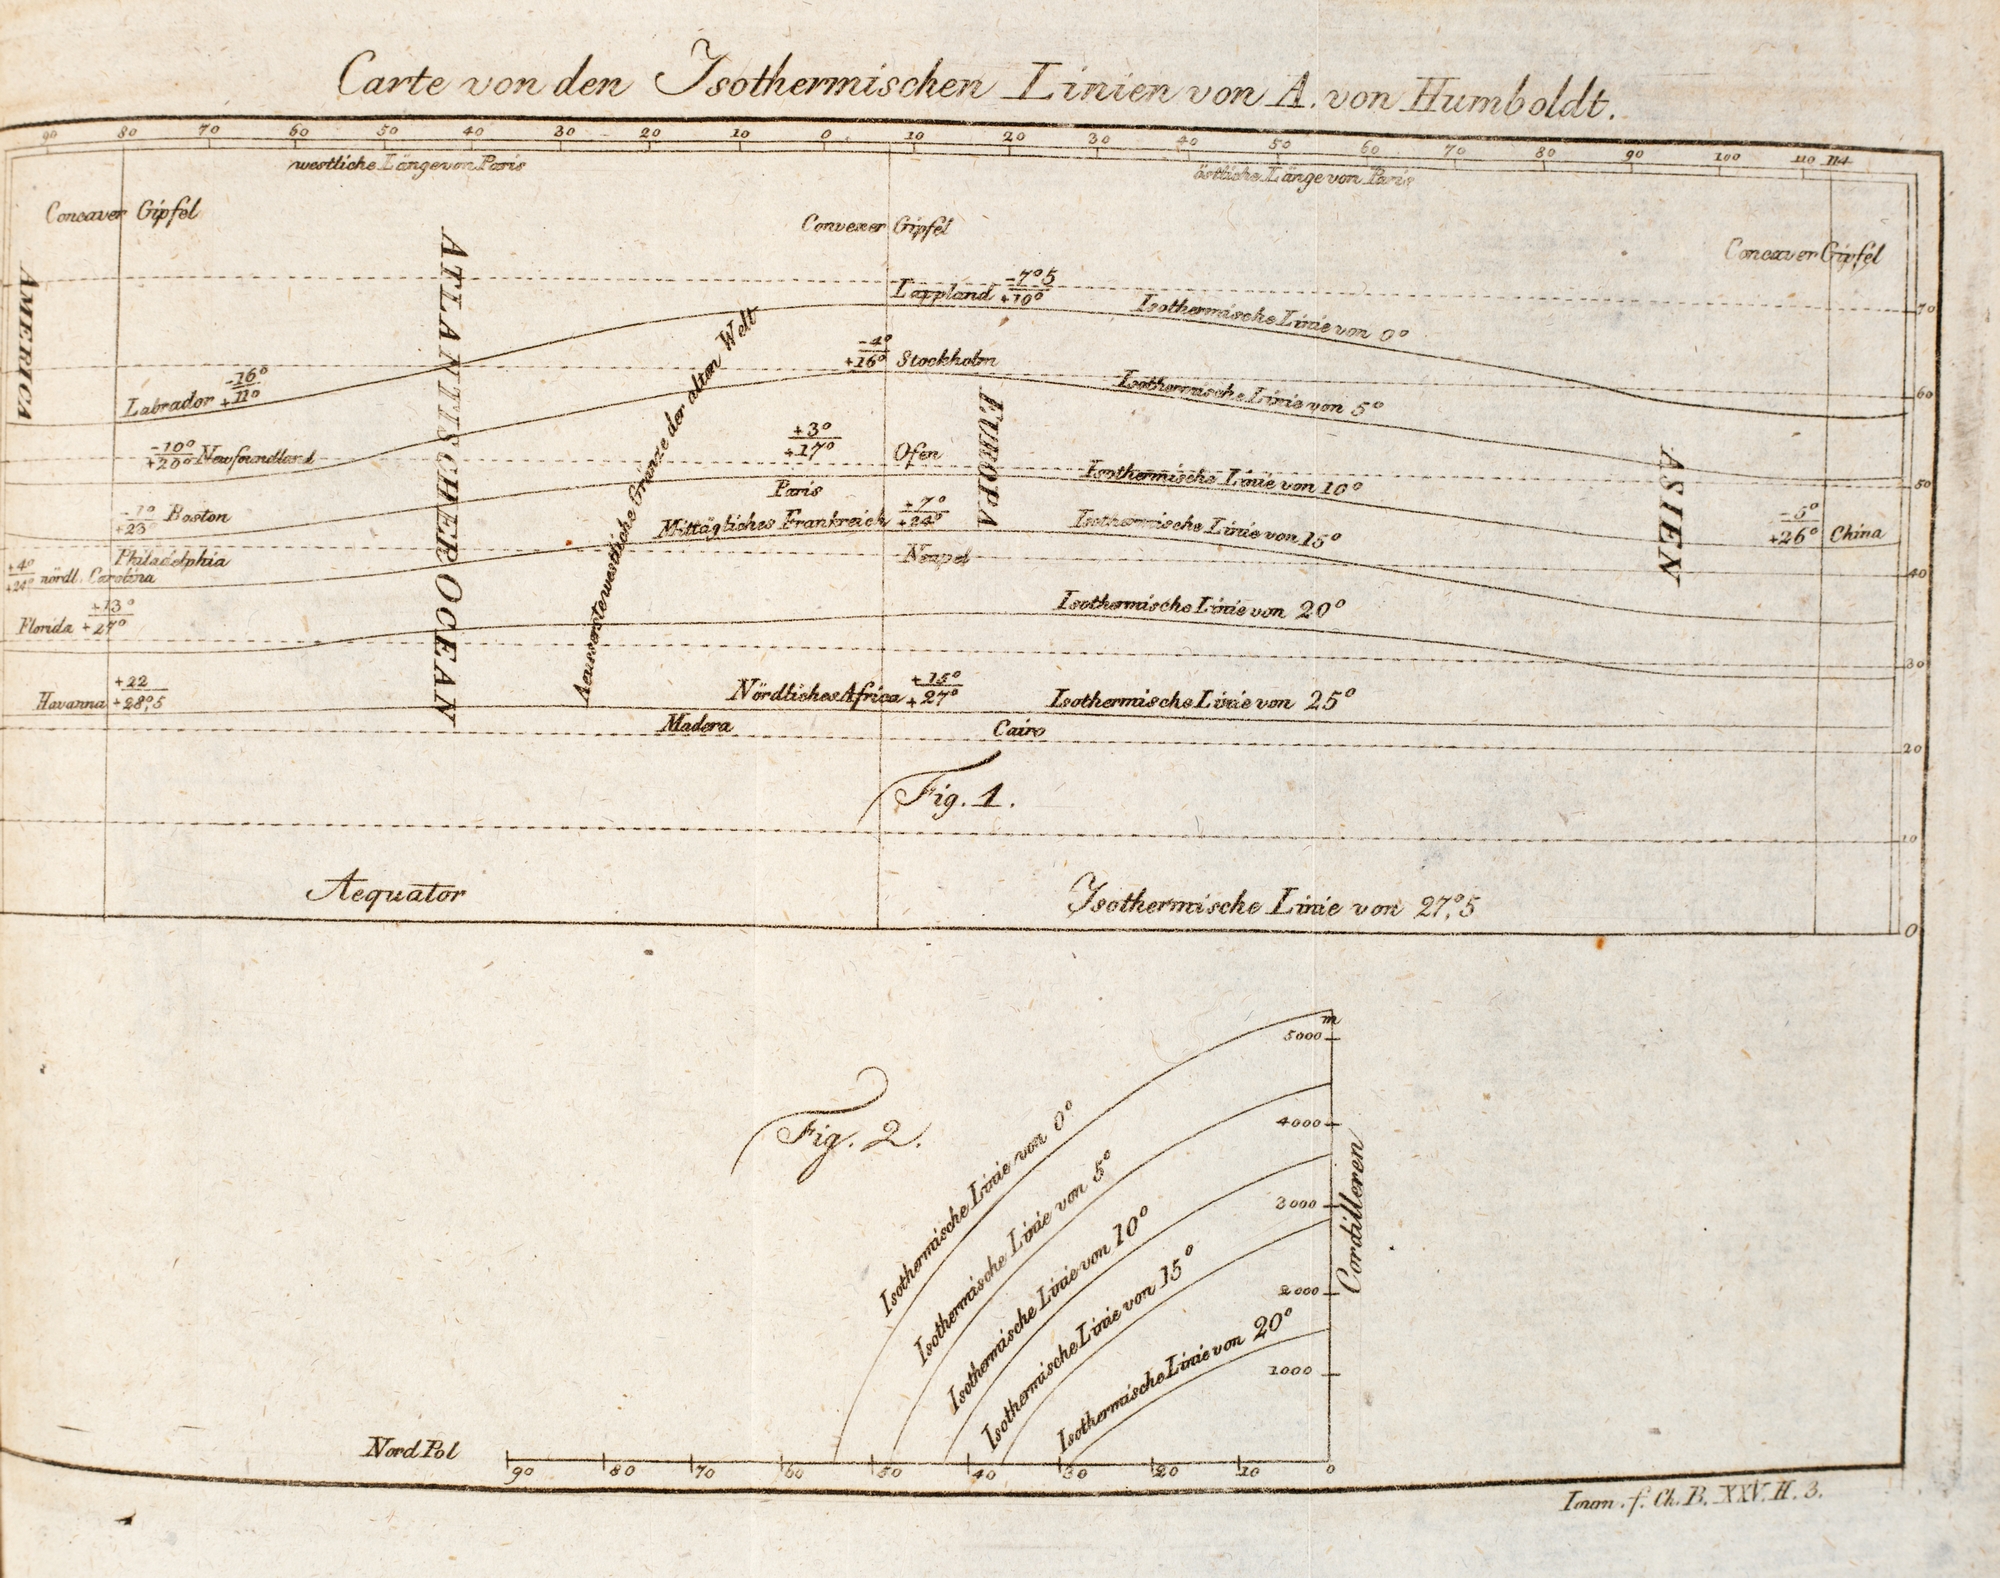 Carte von den Isothermischen Linien von A. von Humboldt.
90 80 70 60 50 40 30 20 10 0 10 20 30 40 50 60 70 80 90 100 110 114
westliche Länge von Paris
östliche Länge von Paris
Concaver Gipfel
Convexer Gipfel
Concaver Gipfel
AMERICA
ATLANTISCHER OCEAN
Aeusserste westliche Gränze der alten Welt
EUROPA
ASIEN
Lappland -7°5
+10°
Isothermische Linie von 0°
70
Labrador -16°
+11°
-4°
+16° Stockholm
Isothermische Linie von 5°
60
-10°
+20° Newfoundland
+3°
+17° Ofen
Isothermische Linie von 10°
50
Paris
-1°
+23 Boston
Mittägliches Frankreich +7°
+24°
Isothermische Linie von 15°
-5°
+26° China
Philadelphia
Neapel
+4°
+24° nördl. Carolina
40
Florida +13°
+27°
Isothermische Linie von 20°
30
Havanna +22
+28°,5
Nördliches Africa +15°
+27°
Isothermische Linie von 25°
Madera
Cairo
20
Fig. 1.
10
Aequator
Isothermische Linie von 27°,5
0
Fig. 2.
m
5000
4000
3000
2000
1000
Cordilleren
Isothermische Linie von 0°
Isothermische Linie von 5°
Isothermische Linie von 10°
Isothermische Linie von 15°
Isothermische Linie von 20°
Nord Pol
90 80 70 60 50 40 30 20 10 0
Iourn. f. Ch. B. XXV. H. 3.